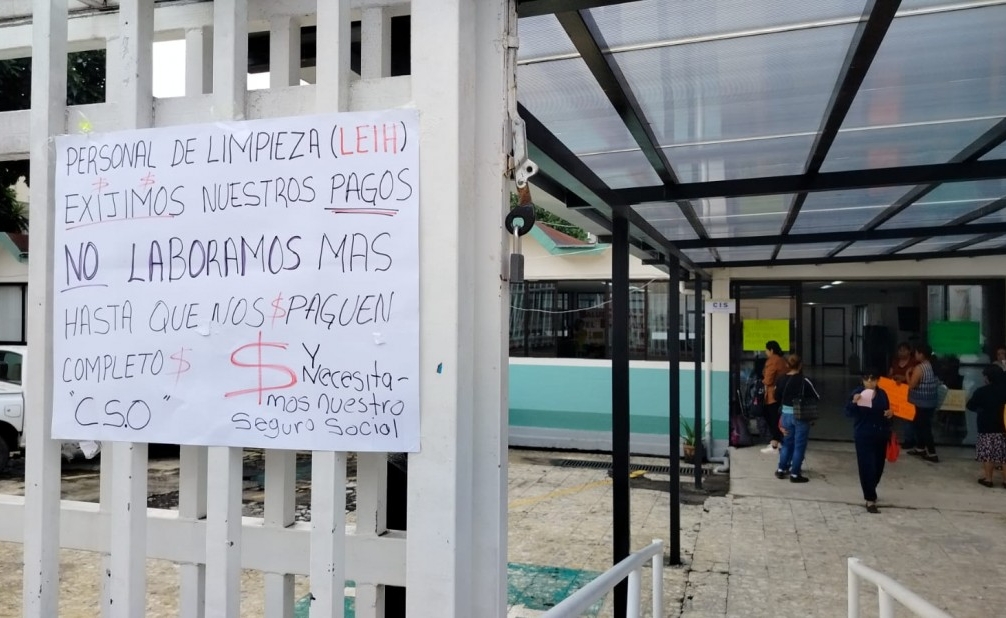 PERSONAL DE LIMPIEZA (LEIH)
EXIJIMOS NUESTROS PAGOS
NO LABORAMOS MAS
HASTA QUE NOS $ PAGUEN
COMPLETO $ $ Y
Necesita-
mos nuestro
"C.S.O" Seguro Social
CIS